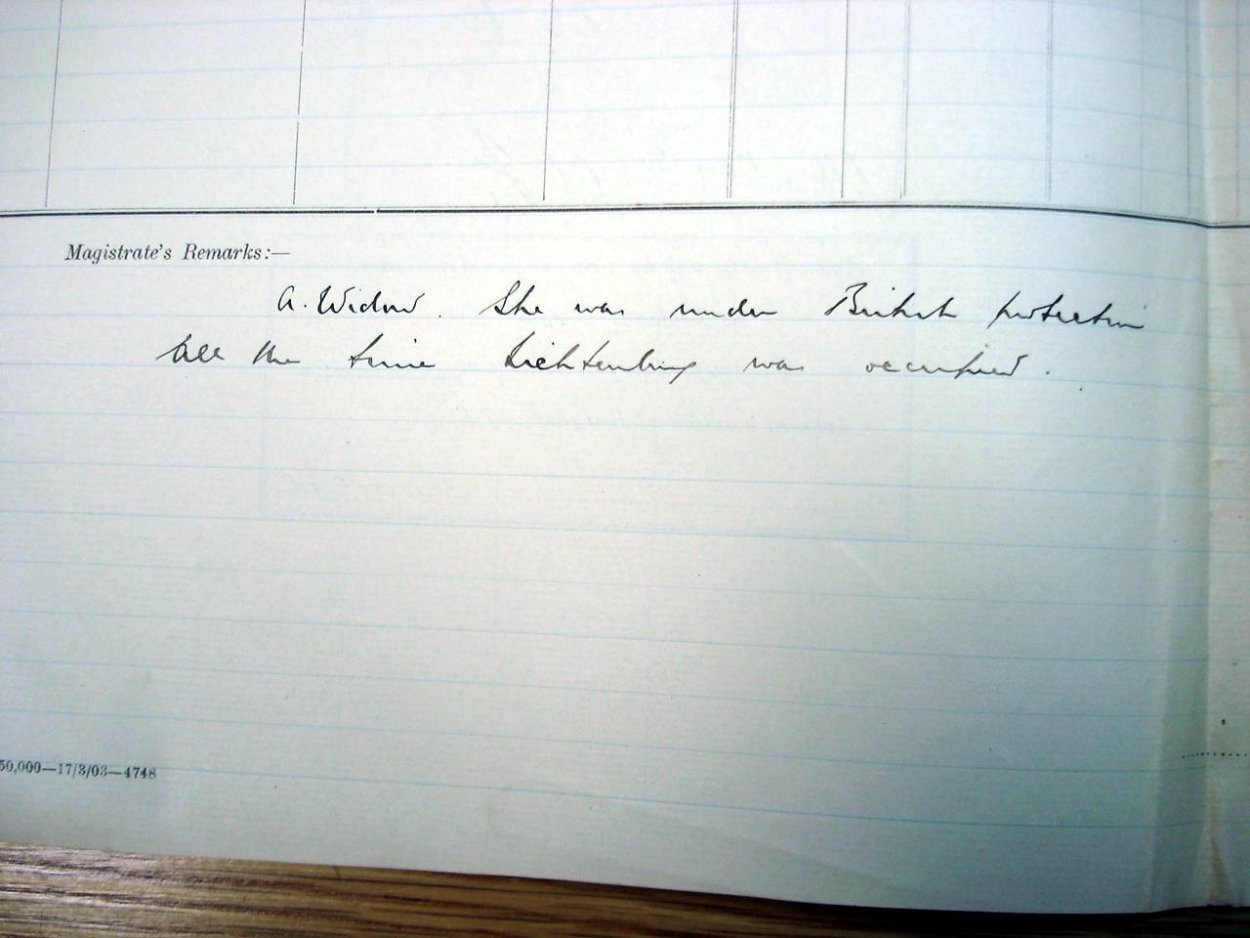 Magistrate's Remarks:—
A. Widow. She was under British protection
all the time Lichtenburg was occupied.
50,000—17/3/03—4748